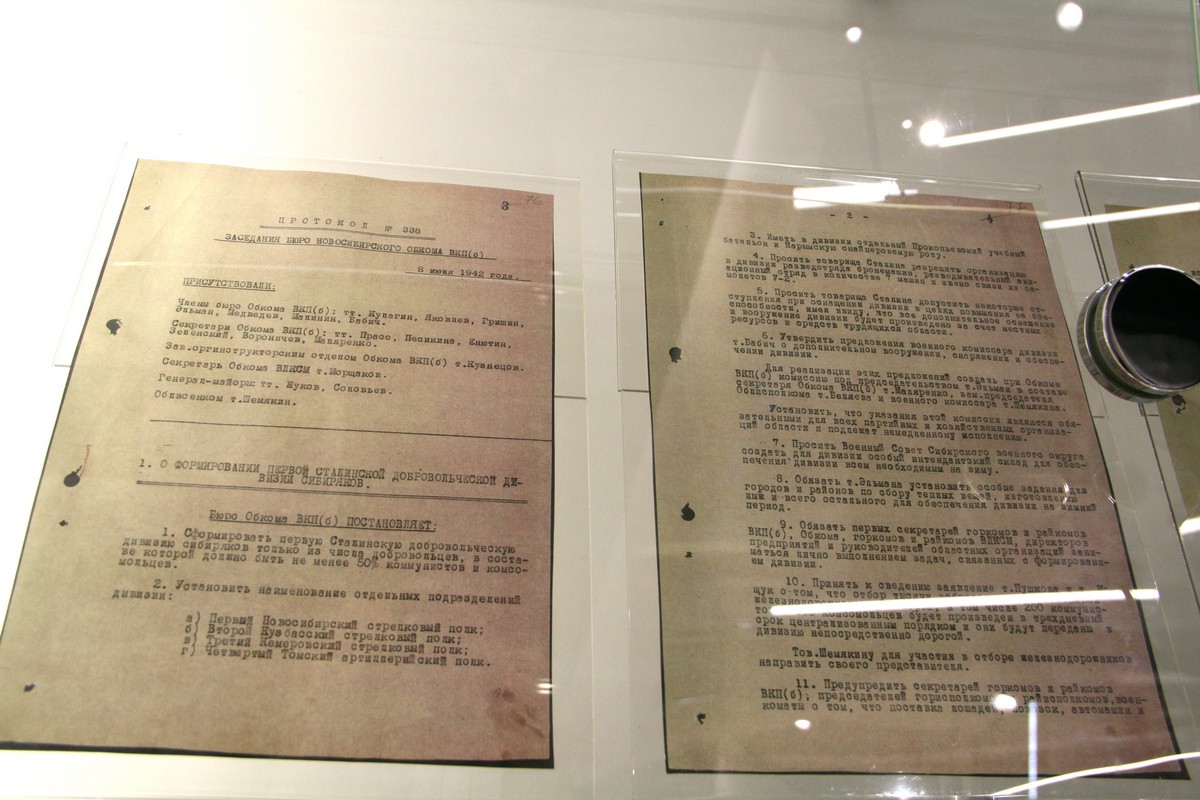 3 76
ПРОТОКОЛ № 338
ЗАСЕДАНИЯ БЮРО НОВОСИБИРСКОГО ОБКОМА ВКП(б)
8 июля 1942 года.
ПРИСУТСТВОВАЛИ:
Члены бюро Обкома ВКП(б): тт. Кулагин, Яковлев, Гришин,
Эльман, Медведев, Малинин, Бабич.
Секретари Обкома ВКП(б): тт. Прасс, Песикина, Енютин,
Зеленский, Вороничев, Маляренко.
Зав.оргинструкторским отделом Обкома ВКП(б) т.Кузнецов.
Секретарь Обкома ВЛКСМ т.Морщаков.
Генерал-майоры: тт. Жуков, Соловьев.
Облвоенком т.Шемякин.
1. О ФОРМИРОВАНИИ ПЕРВОЙ СТАЛИНСКОЙ ДОБРОВОЛЬЧЕСКОЙ ДИ-
ВИЗИИ СИБИРЯКОВ.
Бюро Обкома ВКП(б) ПОСТАНОВЛЯЕТ:
1. Сформировать первую Сталинскую добровольческую
дивизию сибиряков только из числа добровольцев, в соста-
ве которой должно быть не менее 50% коммунистов и комсо-
мольцев.
2. Установить наименование отдельных подразделений
дивизии:
а) Первый Новосибирский стрелковый полк;
б) Второй Кузбасский стрелковый полк;
в) Третий Кемеровский стрелковый полк;
г) Четвертый Томский артиллерийский полк.
- 2 -
4
3. Иметь в дивизии отдельный Прокопьевский учебный
батальон и Нарымскую снайперовскую роту.
4. Просить товарища Сталина разрешить организацию
в дивизии разведотряда бронемашин, разведывательный ави-
ационный отряд в количестве 7 машин и звено связи из са-
молетов У-2.
5. Просить товарища Сталина допустить некоторые от-
ступления при оснащении дивизии в целях повышения ее бое-
способности, имея ввиду, что все дополнительное оснащение
и вооружение дивизии будет произведено за счет местных
ресурсов и средств трудящихся области.
6. Утвердить предложения военного комиссара дивизии
т.Бабич о дополнительном вооружении, снаряжении и обеспе-
чении дивизии.
Для реализации этих предложений создать при Обкоме
ВКП(б) комиссию под председательством т.Эльман в составе
секретаря Обкома ВКП(б) т.Маляренко, зам.председателя
Облисполкома т.Беляева и военного комиссара т.Шемякина.
Установить, что указания этой комиссии являются обя-
зательными для всех партийных и хозяйственных организа-
ций области и подлежат немедленному исполнению.
7. Просить Военный Совет Сибирского военного округа
создать для дивизии особый интендантский склад для обес-
печения дивизии всем необходимым на зиму.
8. Обязать т.Эльмана установить особые задания для
городов и районов по сбору теплых вещей, изготовлению
лыж и всего остального для обеспечения дивизии на зимний
период.
9. Обязать первых секретарей горкомов и райкомов
ВКП(б), Обкома, горкомов и райкомов ВЛКСМ, директоров
предприятий и руководителей областных организаций зани-
маться лично выполнением задач, связанных с формировани-
ем дивизии.
10. Принять к сведению заявление т.Пушкова и
щук о том, что отбор
комсомольцев, в том числе 200 коммунис-
будет произведен в трехдневный
срок централизованным порядком и они будут переданы в
дивизию непосредственно дорогой.
Тов.Шемякину для участия в отборе железнодорожников
направить своего представителя.
11. Предупредить секретарей горкомов и райкомов
ВКП(б), председателей горисполкомов и райисполкомов, воен-
коматы о том, что поставка лошадей, повозок, автомашин и